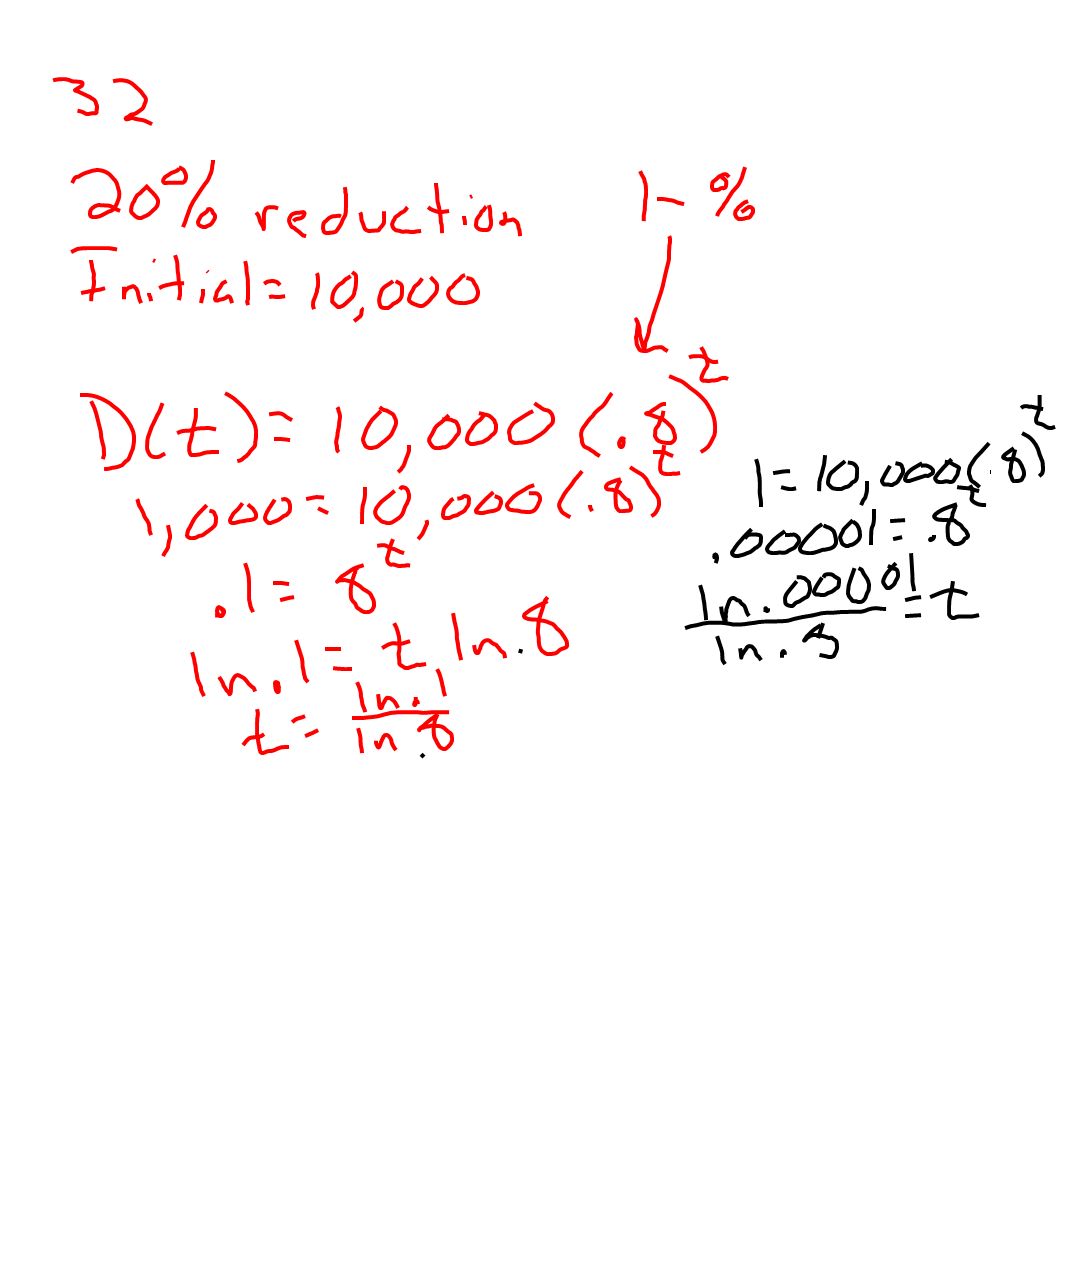 32
20% reduction
1-%
Initial = 10,000
D(t) = 10,000(.8)^t
1,000 = 10,000(.8)^t
.1 = 8^t
ln.1 = t ln.8
t = ln.1/ln.8
1 = 10,000(.8)^t
.00001 = .8^t
ln.0001/ln.8 = t